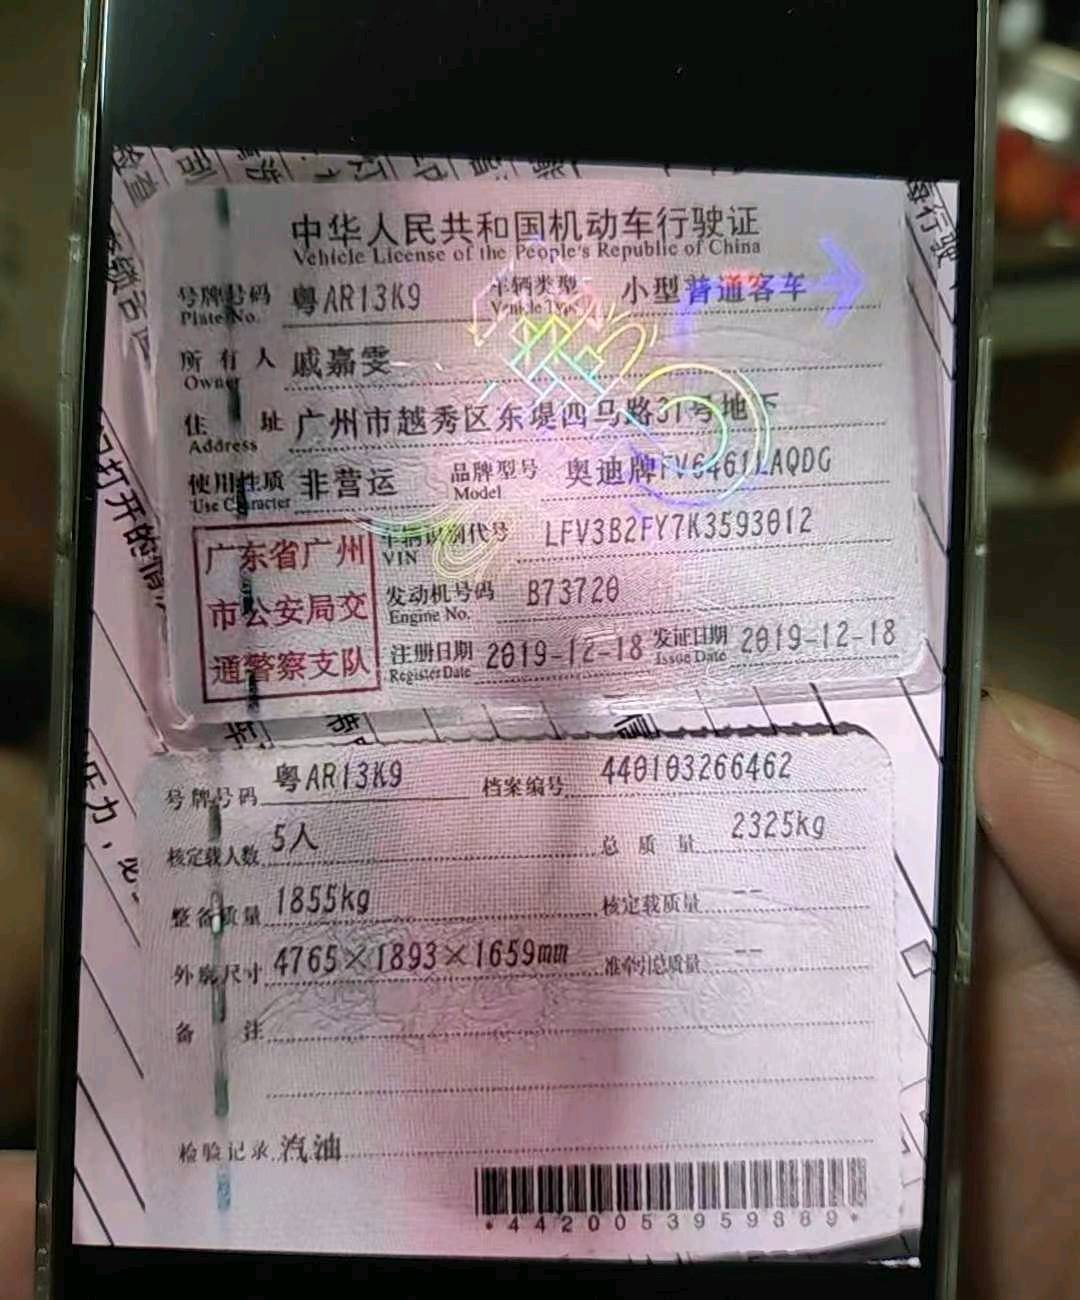 中华人民共和国机动车行驶证
Vehicle License of the People's Republic of China
号牌号码 粤AR13K9 车辆类型 小型普通客车
Plate No. Vehicle Type
所有人 戚嘉雯
Owner
住址 广州市越秀区东堤四马路31号地下
Address
使用性质 非营运 品牌型号 奥迪牌FV6461LAQDG
Use Character Model
广东省广州
市公安局交
通警察支队
车辆识别代号 LFV3B2FY7K3593012
VIN
发动机号码 B73720
Engine No.
注册日期 2019-12-18 发证日期 2019-12-18
Register Date Issue Date
号牌号码 粤AR13K9 档案编号 440103266462
核定载人数 5人 总质量 2325kg
整备质量 1855kg 核定载质量 --
外廓尺寸 4765×1893×1659mm 准牵引总质量 --
备注
检验记录 汽油
*4420053959889*